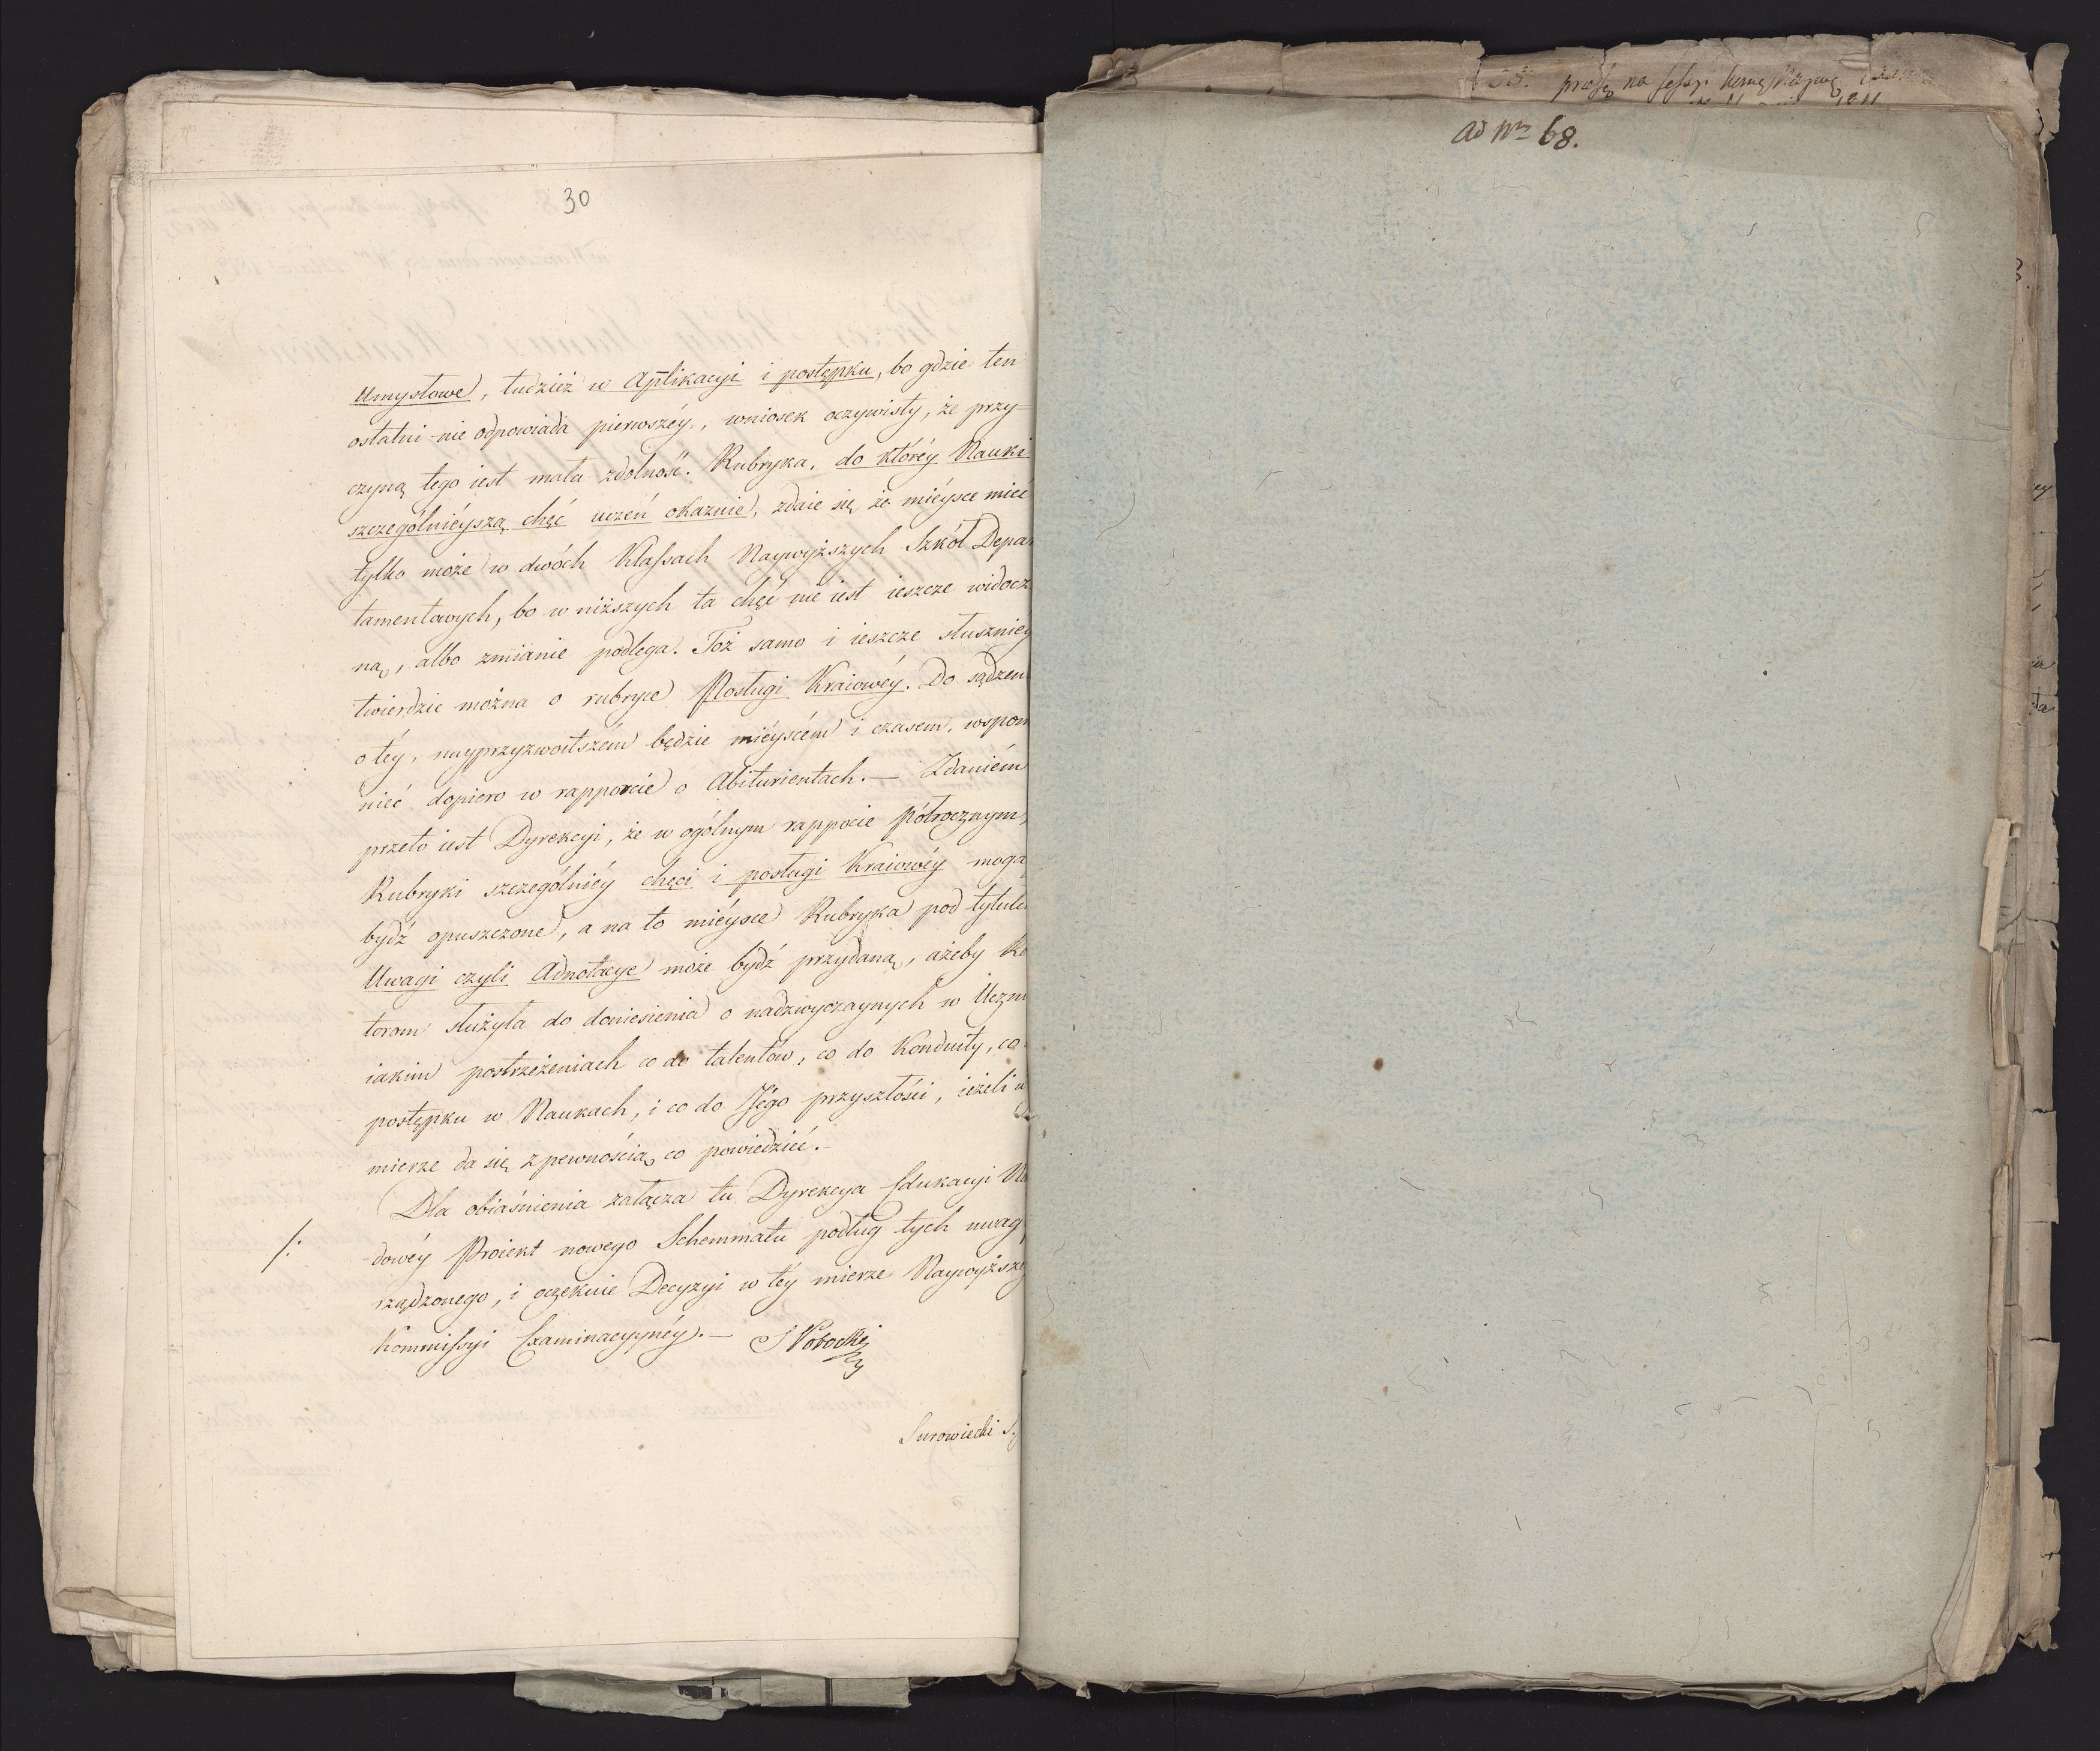 30
Umysłowe, tudzież w Aplikacyi i postępku, bo gdzie ten
ostatni nie odpowiada pierwszéy, wniosek oczywisty, że przy-
czyną tego iest mała zdolność. Rubryka, do któréy Nauki
szczególnieyszą chęć uczeń okaznie, zdaie się że mieysce mieć
tylko może w dwóch Klassach Naywyższych Szkół Depar
tamentowych, bo w niższych ta chęć nie iest ieszcze widocz
ną, albo zmianie podlega. Toż samo i ieszcze słuszniey
twierdzić można o rubryce Posługi Kraiowéy. Do sądzen
o téy, nayprzyzwoitszém będzie mieyscém i czasem, wspom
nieć dopiero w rapporcie o Abiturientach. — Zdaniém
przeto iest Dyrekcyi, że w ogólnym rappocie Półrocznym,
Rubryki szczególniéy chęci i posługi Kraiowéy mogą
bydź opuszczone, a na to miéysce Rubryka pod tytułe
Uwagi czyli Adnotacye może bydź przydaną, ażeby Re
torom służyła do doniesienia o nadzwyczaynych w Uczni
iakim postrzeżeniach co do talentów, co do Konduity, co
postępku w Naukach, i co do Jégo przyszłości, ieżeli w
mierze da się z pewnością co powiedzieć.-
Dla obiaśnienia załącza tu Dyrekcya Edukacyi Na
/: dowéy Proiekt nowego Schemmatu podług tych uwag
rządzonego, i oczekuie Decyzyi w téy mierze Naywyższey
Kommissyi Examinacyynéy. — S Potocki
Surowiecki S.
53. proszę na sessyi
Ad Nrm 68.